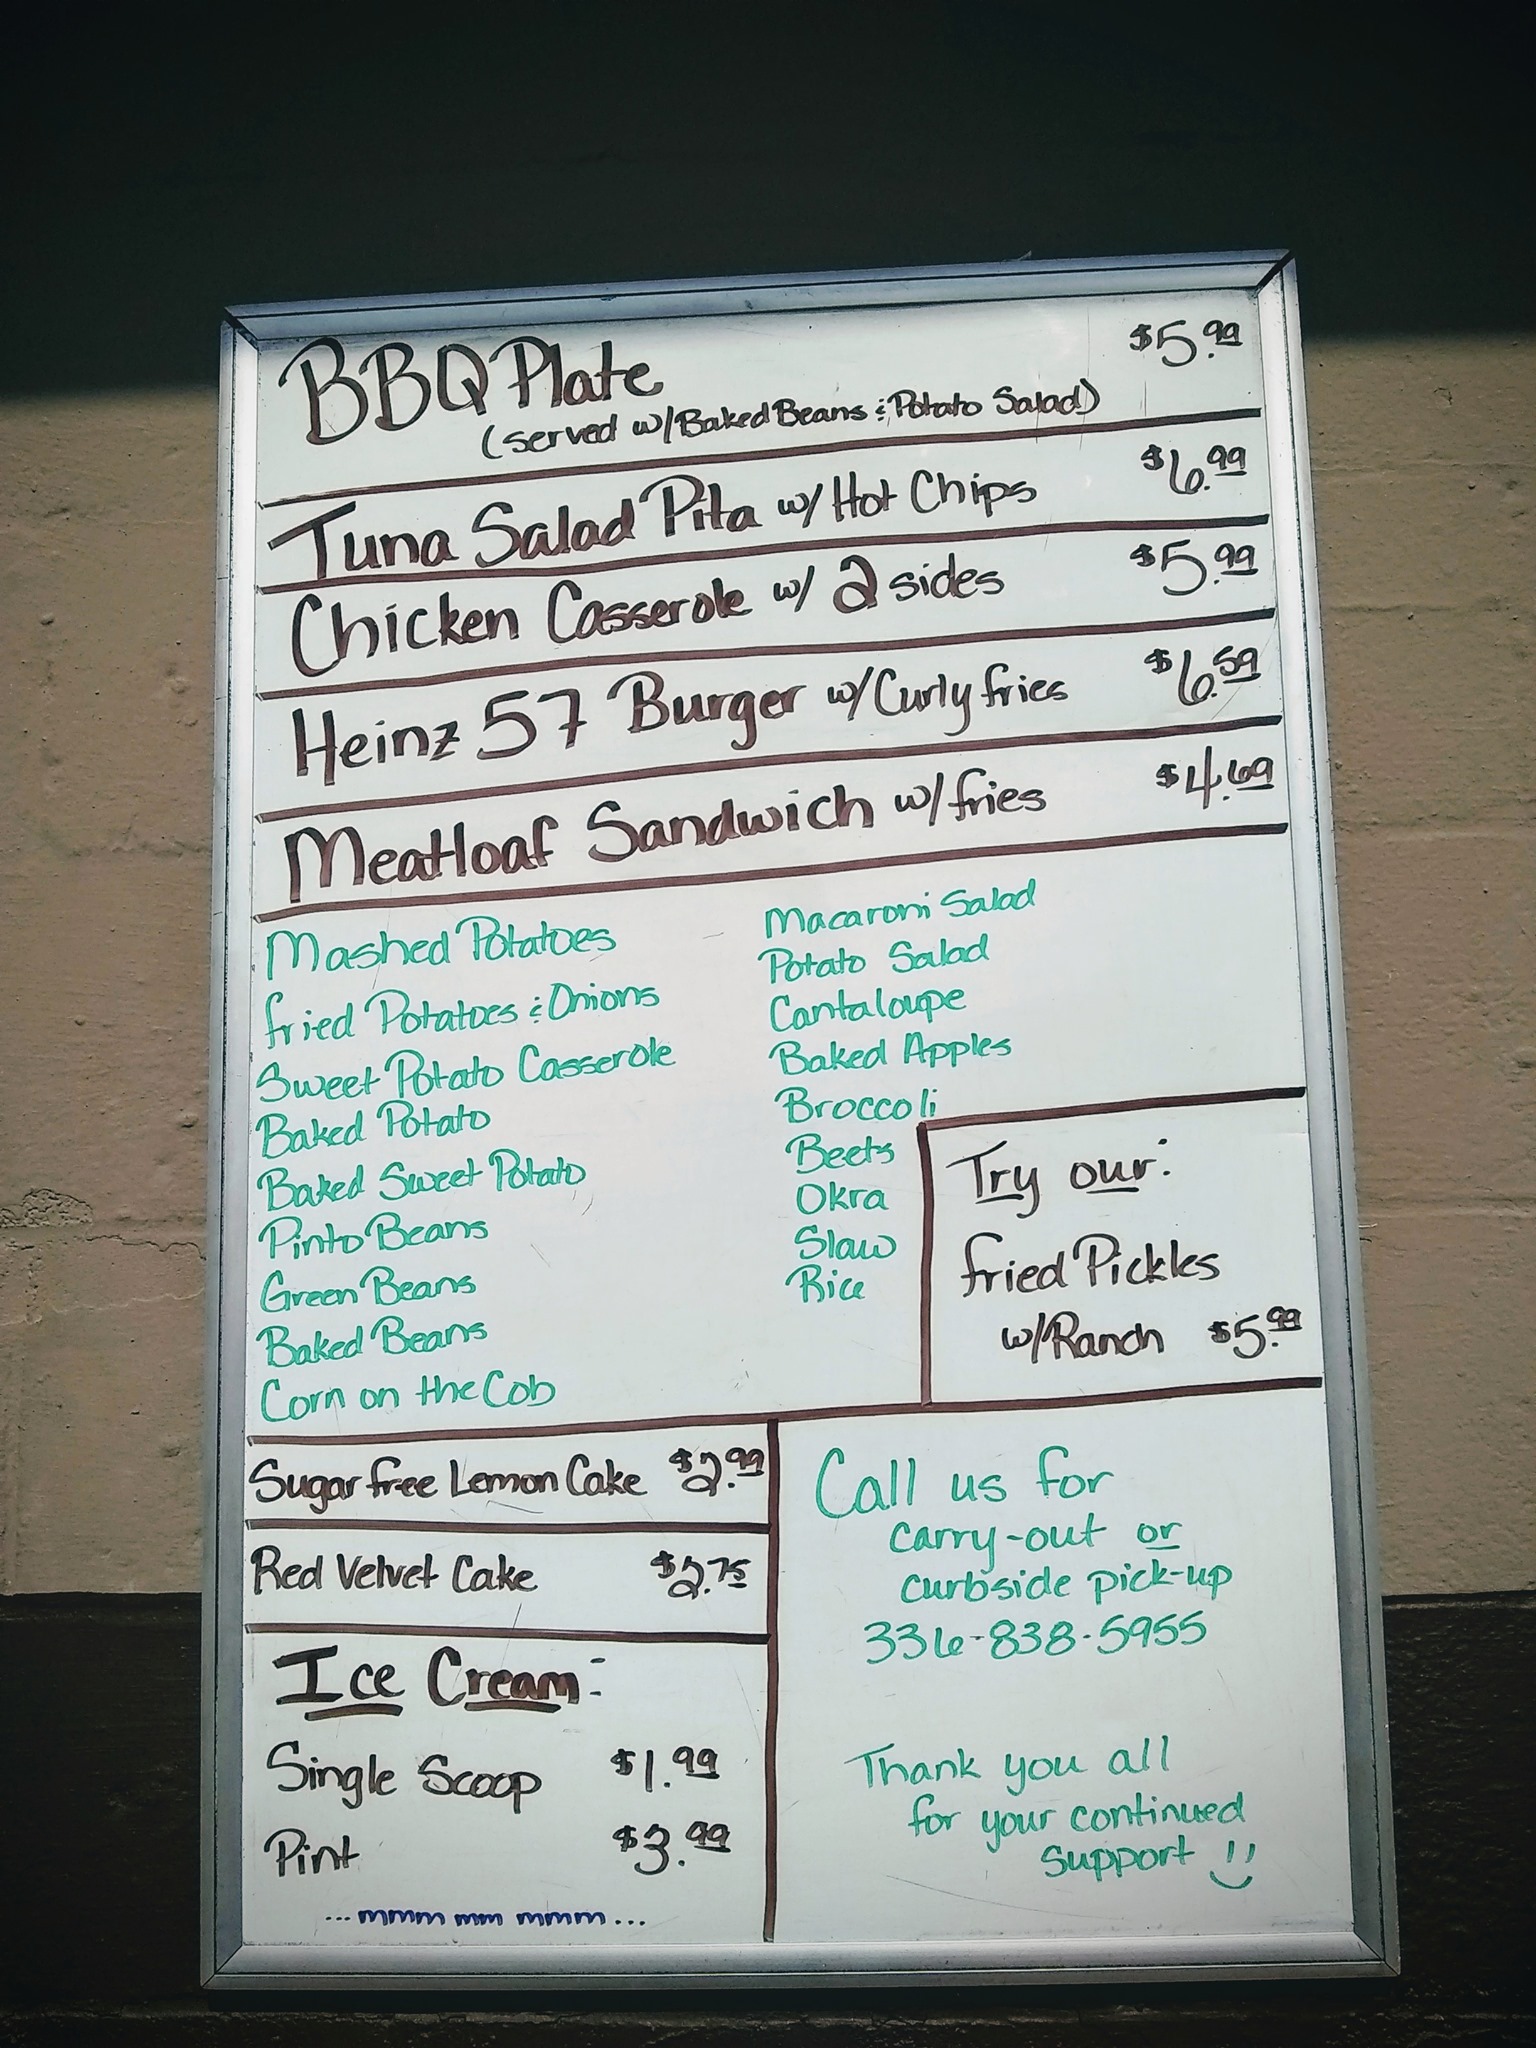 BBQ Plate $5.99
(served w/Baked Beans & Potato Salad)
Tuna Salad Pita w/Hot Chips $6.99
Chicken Casserole w/ 2 sides $5.99
Heinz 57 Burger w/Curly fries $6.59
Meatloaf Sandwich w/fries $4.69
Mashed Potatoes
fried Potatoes & Onions
Sweet Potato Casserole
Baked Potato
Baked Sweet Potato
Pinto Beans
Green Beans
Baked Beans
Corn on the Cob
Macaroni Salad
Potato Salad
Cantaloupe
Baked Apples
Broccoli
Beets
Okra
Slaw
Rice
Try our:
fried Pickles
w/Ranch $5.99
Sugar free Lemon Cake $2.99
Red Velvet Cake $2.75
Ice Cream:
Single Scoop $1.99
Pint $3.99
...mmmm mm mmmm...
Call us for
carry-out or
curbside pick-up
336-838-5955
Thank you all
for your continued
support !!